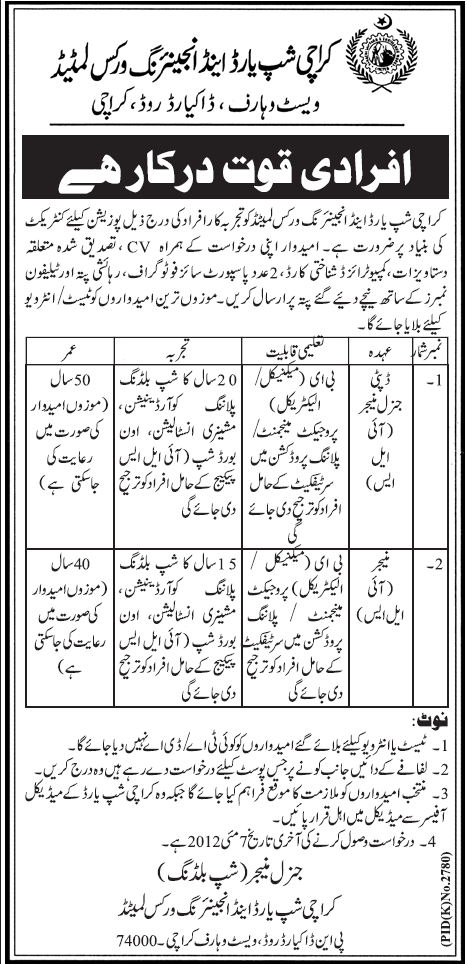 کراچی شپ یارڈ اینڈ انجینئرنگ ورکس لمیٹڈ
ویسٹ وہارف، ڈاکیارڈ روڈ، کراچی
افرادی قوت درکار ھے
کراچی شپ یارڈ اینڈ انجینئرنگ ورکس لمیٹڈ کو تجربہ کار افراد کی درج ذیل پوزیشن کیلئے کنٹریکٹ
کی بنیاد پر ضرورت ہے۔ امیدوار اپنی درخواست کے ہمراہ CV، تصدیق شدہ متعلقہ
دستاویزات، کمپیوٹرائزڈ شناختی کارڈ، 2 عدد پاسپورٹ سائز فوٹوگراف، رہائشی پتہ اور ٹیلیفون
نمبرز کے ساتھ نیچے دیئے گئے پتہ پر ارسال کریں۔ موزوں ترین امیدواروں کو ٹیسٹ/انٹرویو
کیلئے بلایا جائے گا۔
نمبر شمار عہدہ تعلیمی قابلیت تجربہ عمر
1۔
ڈپٹی
جنرل منیجر
(آئی
ایل
ایس)
بی ای (میکنیکل/
الیکٹریکل)
پروجیکٹ مینجمنٹ/
پلاننگ پروڈکشن میں
سرٹیفکیٹ کے حامل
افراد کو ترجیح دی جائے
گی
20 سال کا شپ بلڈنگ
پلاننگ کوآرڈینیشن،
مشینری انسٹالیشن، اون
بورڈ شپ (آئی ایل ایس
پیکیج کے حامل افراد کو ترجیح
دی جائے گی
50 سال
(موزوں امیدوار
کی صورت میں
رعایت کی
جاسکتی ہے)
2۔
منیجر
(آئی
ایل ایس)
بی ای (میکنیکل /
الیکٹریکل) پروجیکٹ
مینجمنٹ / پلاننگ
پروڈکشن میں سرٹیفکیٹ
کے حامل افراد کو ترجیح
دی جائے گی
15 سال کا شپ بلڈنگ
پلاننگ کوآرڈینیشن،
مشینری انسٹالیشن، اون
بورڈ شپ (آئی ایل ایس
پیکیج کے حامل افراد کو ترجیح
دی جائے گی
40 سال
(موزوں امیدوار
کی صورت میں
رعایت کی جاسکتی
ہے)
نوٹ:
1۔ ٹیسٹ یا انٹرویو کیلئے بلائے گئے امیدواروں کو کوئی ٹی اے/ڈی اے نہیں دیا جائے گا۔
2۔ لفافے کے دائیں جانب کونے پر جس پوسٹ کیلئے درخواست دے رہے ہیں وہ درج کریں۔
3۔ منتخب امیدواروں کو ملازمت کا موقع فراہم کیا جائے گا جبکہ وہ کراچی شپ یارڈ کے میڈیکل
آفیسر سے میڈیکل میں اہل قرار پائیں۔
4۔ درخواست وصول کرنے کی آخری تاریخ 7 مئی 2012 ہے۔
جنرل منیجر (شپ بلڈنگ)
کراچی شپ یارڈ اینڈ انجینئرنگ ورکس لمیٹڈ
پی این ڈاکیارڈ روڈ، ویسٹ وہارف کراچی۔ 74000
(PID(K)No.2780)